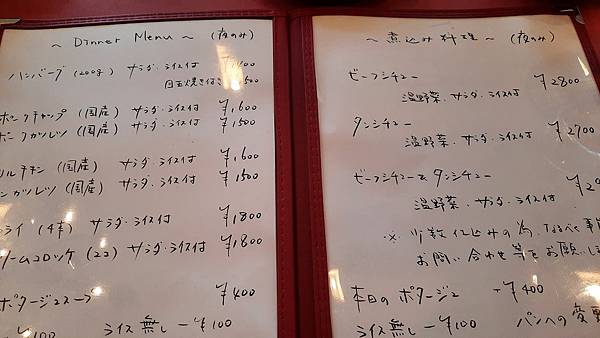 ~ Dinner Menu ~ (夜のみ)
ハンバーグ (200g) サラダ・ライス付
目玉焼き付き
ポークチャップ (国産) サラダ・ライス付 ¥1,600
ポークカツレツ (国産) サラダ・ライス付 ¥1500
チキン (国産) サラダ・ライス付 ¥1,600
カツレツ (国産) サラダ・ライス付 ¥1500
ライ (4本) サラダ・ライス付 ¥1800
ームコロッケ (2コ) サラダ・ライス付 ¥1,800
ポタージュスープ ¥400
¥100 ライス無し -¥100
~ 煮込み料理 ~ (夜のみ)
ビーフシチュー ¥2800
温野菜・サラダ・ライス付
タンシチュー ¥2700
温野菜・サラダ・ライス付
ビーフシチュー & タンシチュー
温野菜・サラダ・ライス付
※ 少数仕込みの為、なるべく事前
お問い合わせ等をお願いし
本日のポタージュ -¥400
ライス無し -¥100 パンへの変更